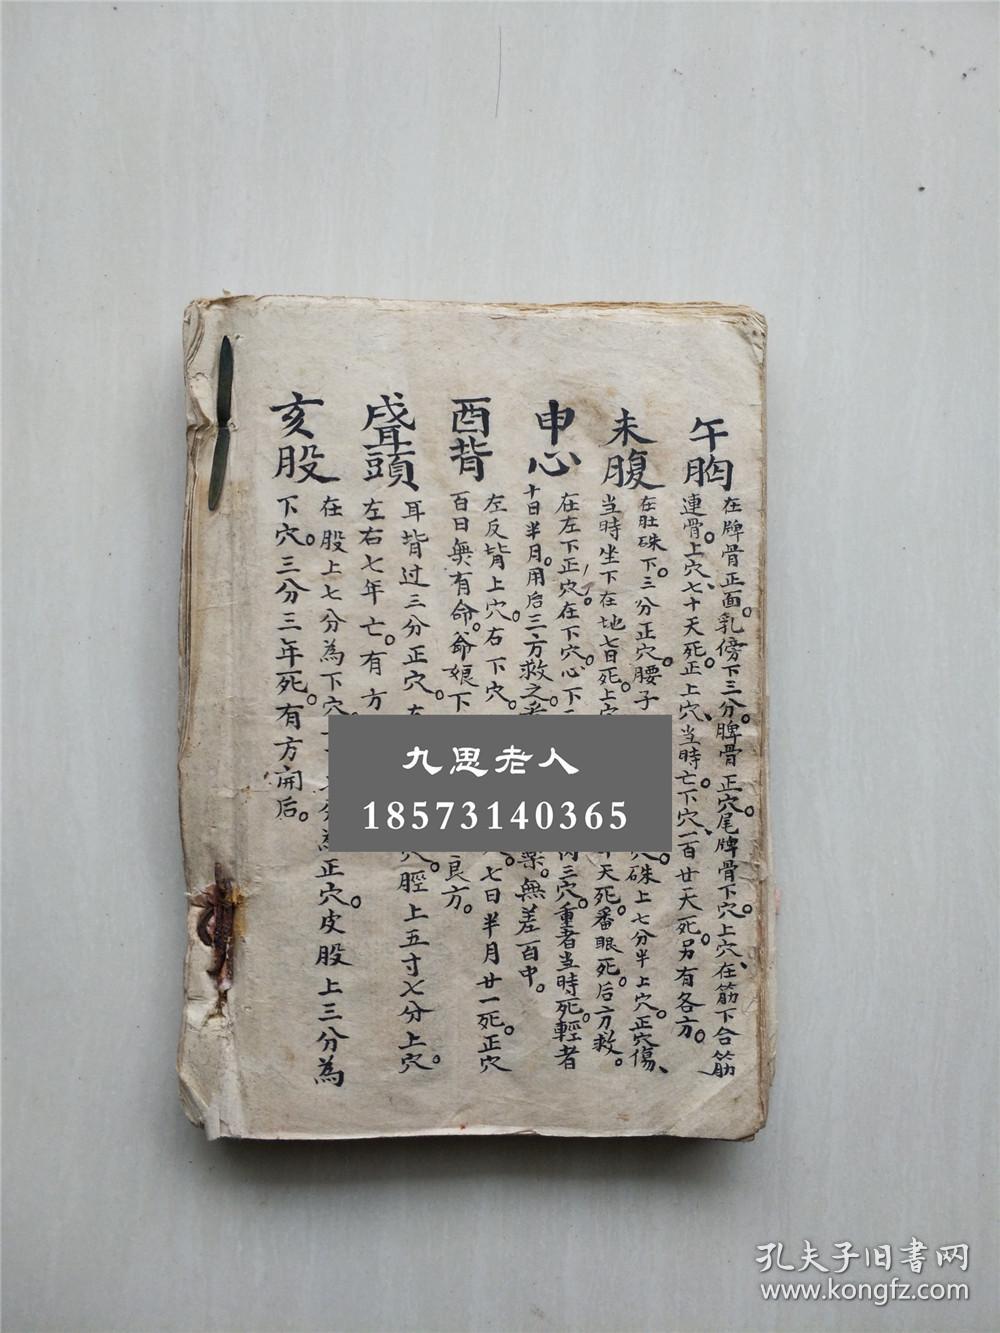 午胸
在牌骨正面。乳傍下三分。脾骨正穴尾牌骨下穴。上穴、在筋下合筋
連骨。上穴、七十天死。正上穴、当時亡。下穴、一百廿天死。另有各方。
未腹
在肚硃下。三分正穴。腰子
穴硃上七分半上穴。正穴傷、
当時坐下在地七日死。上穴
天死。番眼死。后方救。
申心
在左下正穴。在下穴。心下
三穴。重者当時死。輕者
十日半月。用后三方救之。
藥。無差百中。
酉背
左反背上穴。右下穴。
七日半月廿一死。正穴
百日無有命。爺娘下
良方。
頭
耳背过三分正穴。
穴。脛上五寸七分上穴。
左右七年亡。有方
亥股
在股上七分為下穴。
分為正穴。皮股上三分為
下穴。三分三年死。有方開后。
九思老人
18573140365
孔夫子旧書网
www.kongfz.com